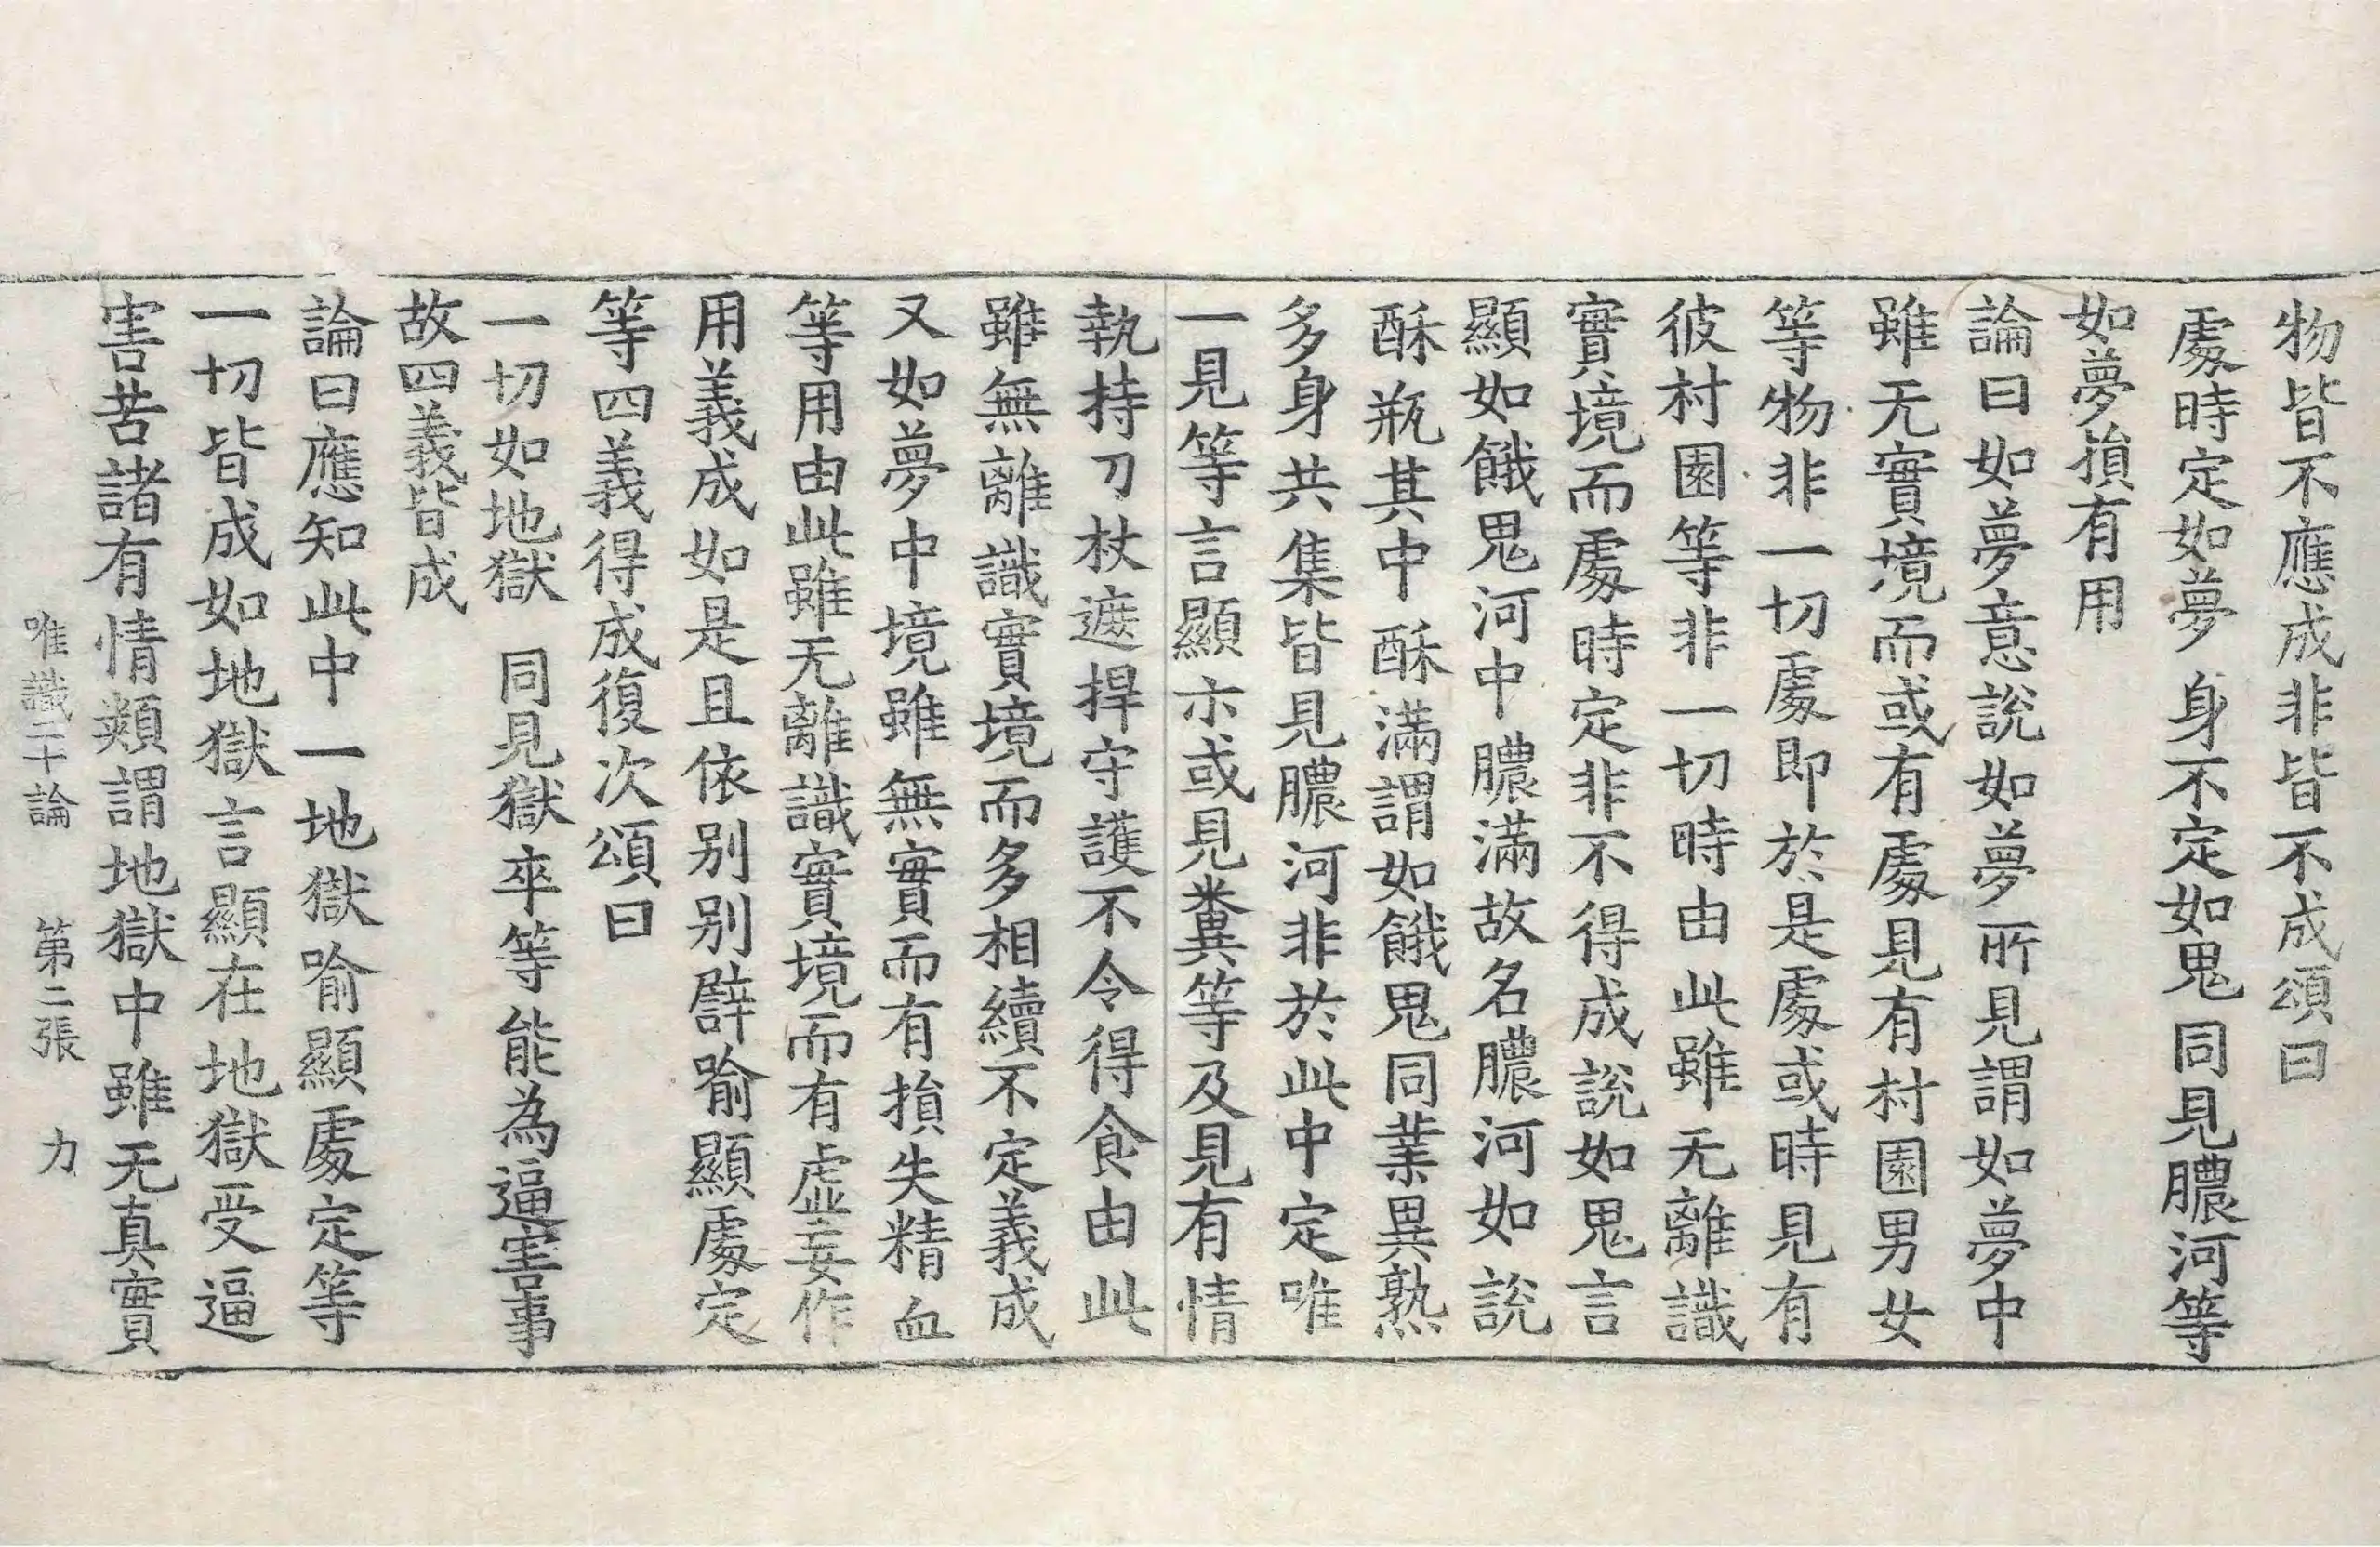 物皆不應成非皆不成頌曰
處時定如夢 身不定如鬼 同見膿河等
如夢損有用
論曰如夢意說如夢所見謂如夢中
雖无實境而或有處見有村園男女
等物非一切處即於是處或時見有
彼村園等非一切時由此雖无離識
實境而處時定非不得成說如鬼言
顯如餓鬼河中膿滿故名膿河如說
酥瓶其中酥滿謂如餓鬼同業異熟
多身共集皆見膿河非於此中定唯
一見等言顯示或見糞等及見有情
執持刀杖遮捍守護不令得食由此
雖無離識實境而多相續不定義成
又如夢中境雖無實而有損失精血
等用由此雖无離識實境而有虛妄作
用義成如是且依別別譬喻顯處定
等四義得成復次頌曰
一切如地獄 同見獄卒等 能為逼害事
故四義皆成
論曰應知此中一地獄喻顯處定等
一切皆成如地獄言顯在地獄受逼
害苦諸有情類謂地獄中雖无真實
唯識二十論 第二張 力